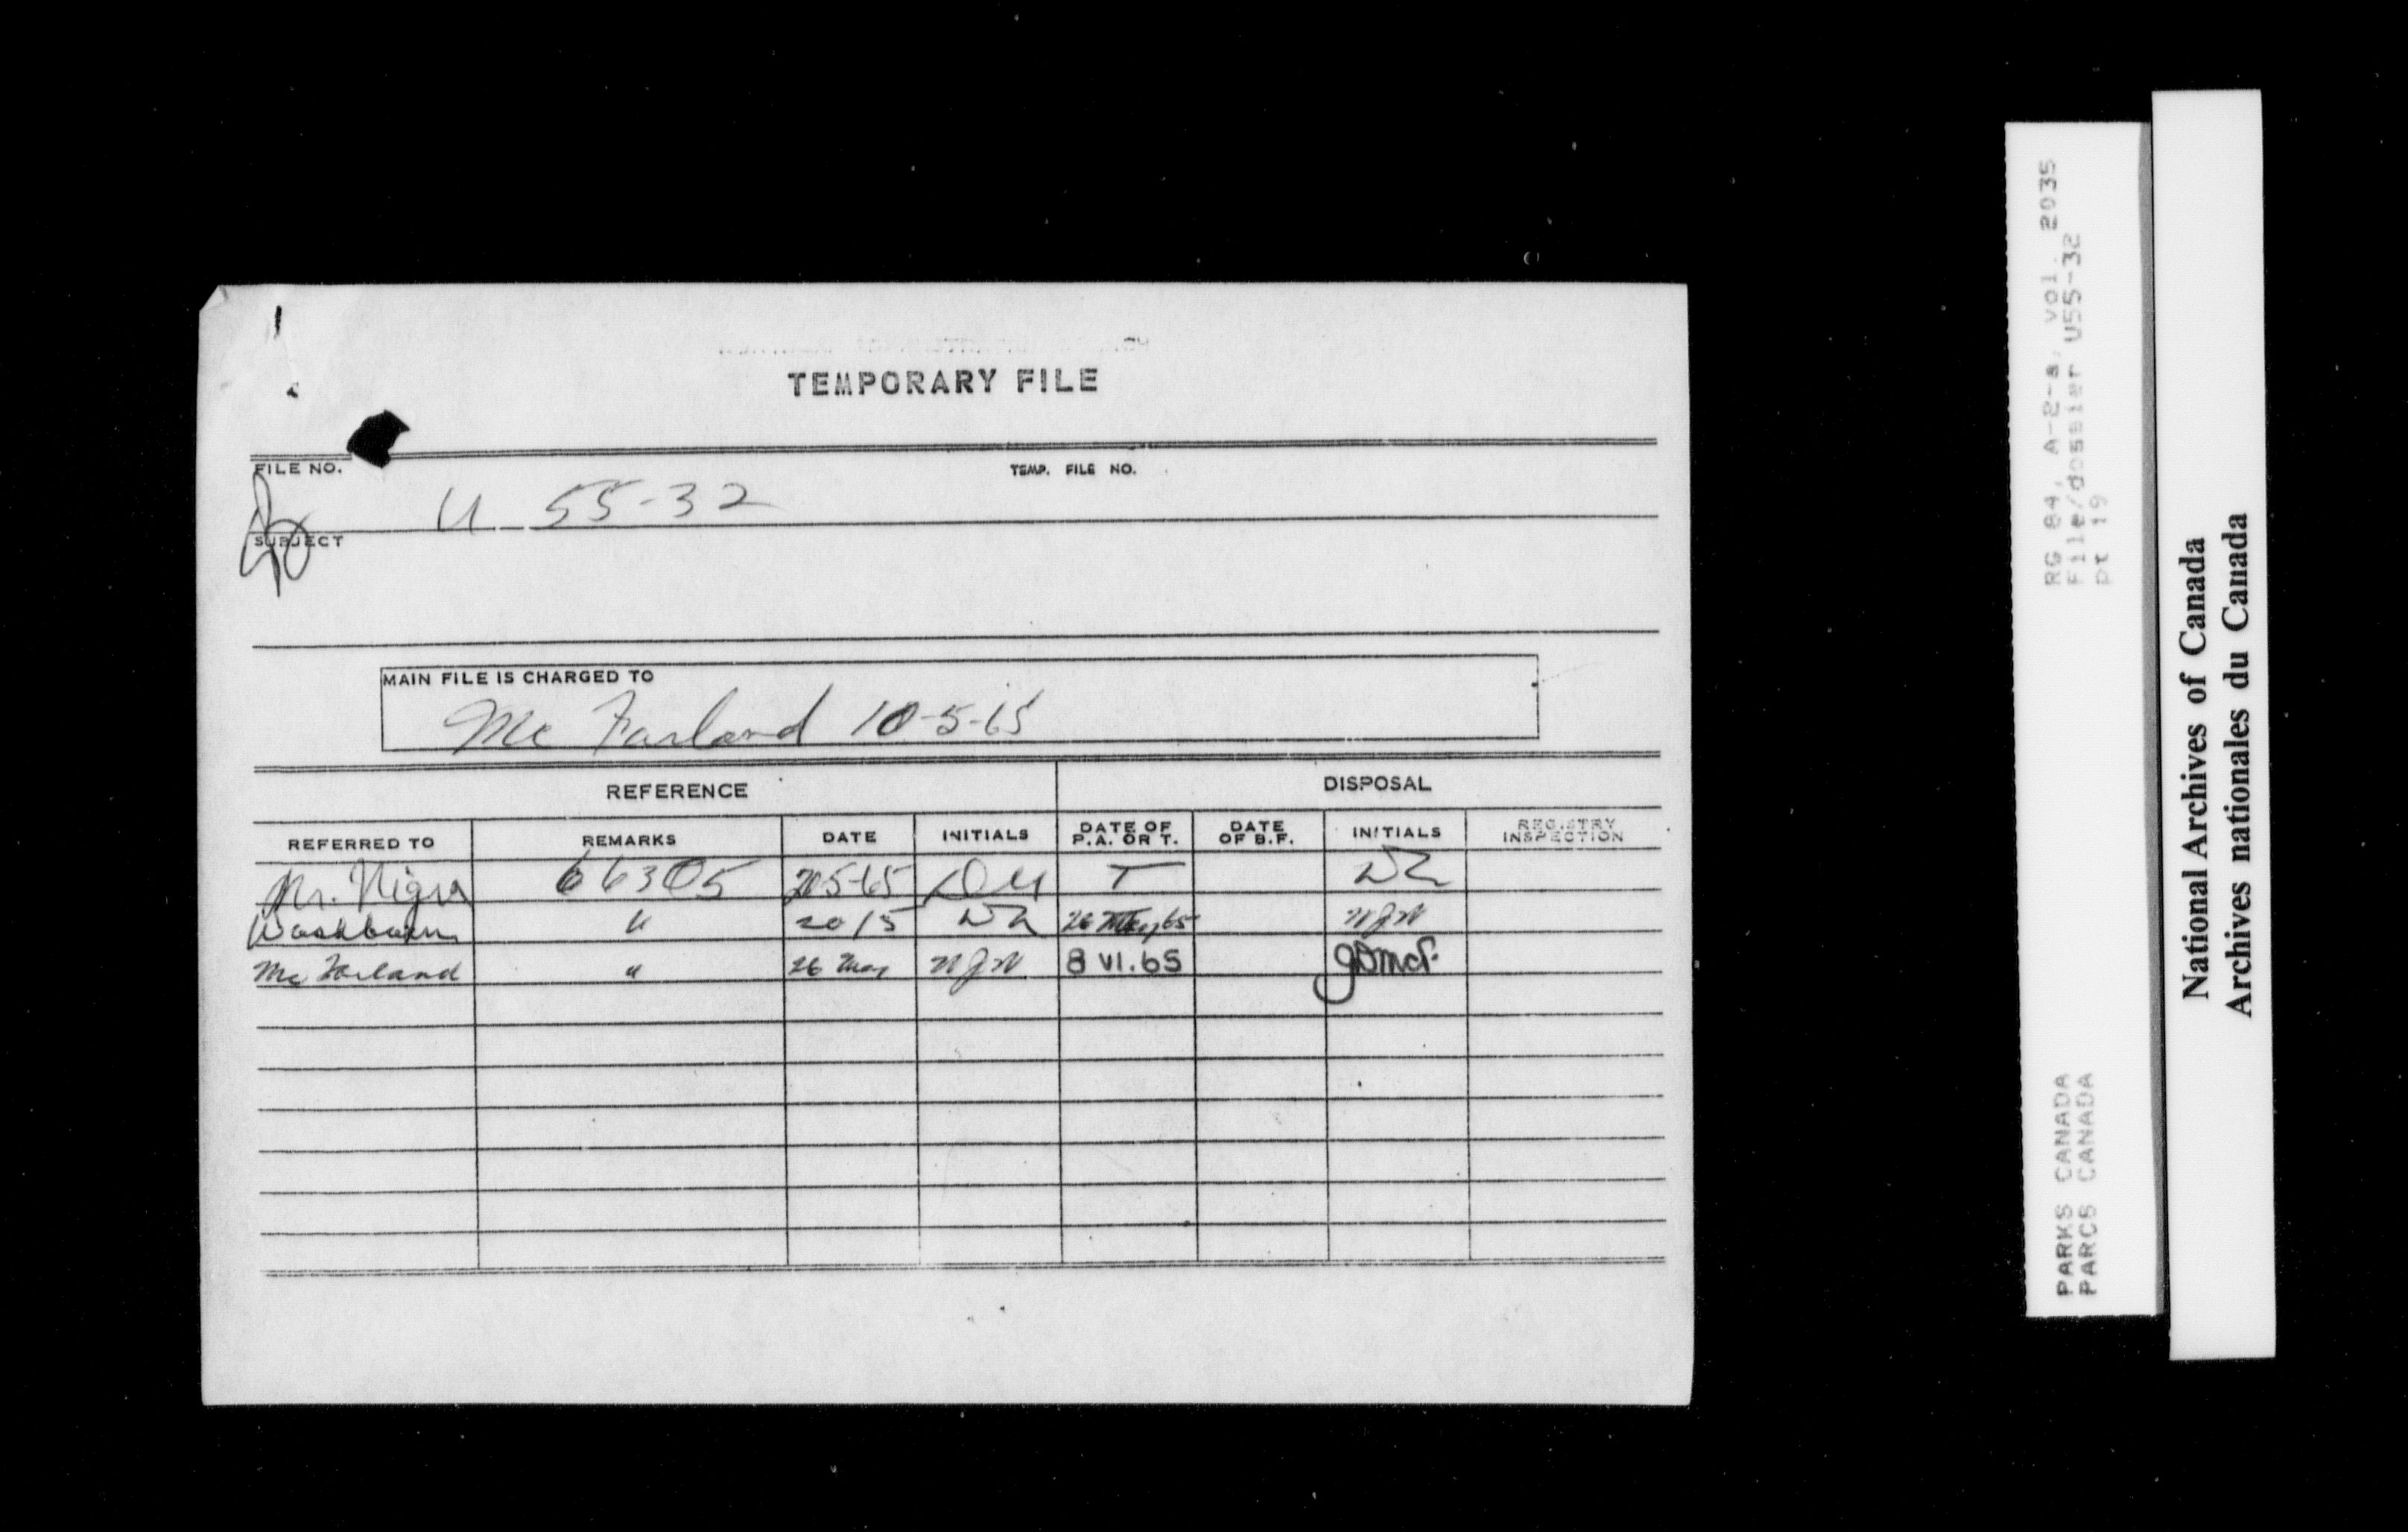 TEMPORARY FILE
FILE NO.
TEMP. FILE NO.
U 55-32
SUBJECT
MAIN FILE IS CHARGED TO
Mc Farland 10-5-65
REFERENCE
DISPOSAL
REFERRED TO REMARKS DATE INITIALS DATE OF P.A. OR T. DATE OF B.F. INITIALS REGISTRY INSPECTION
Mr. Nigra 66305 20-5-65 T
Washburn " 20/5 26 May 65 WJW
Mc Farland " 26 May WJW 8 VI.65 JDMcF.
RG 84, A-2-a, vol. 2035
File/dossier U55-32
pt 19
PARKS CANADA
PARCS CANADA
National Archives of Canada
Archives nationales du Canada